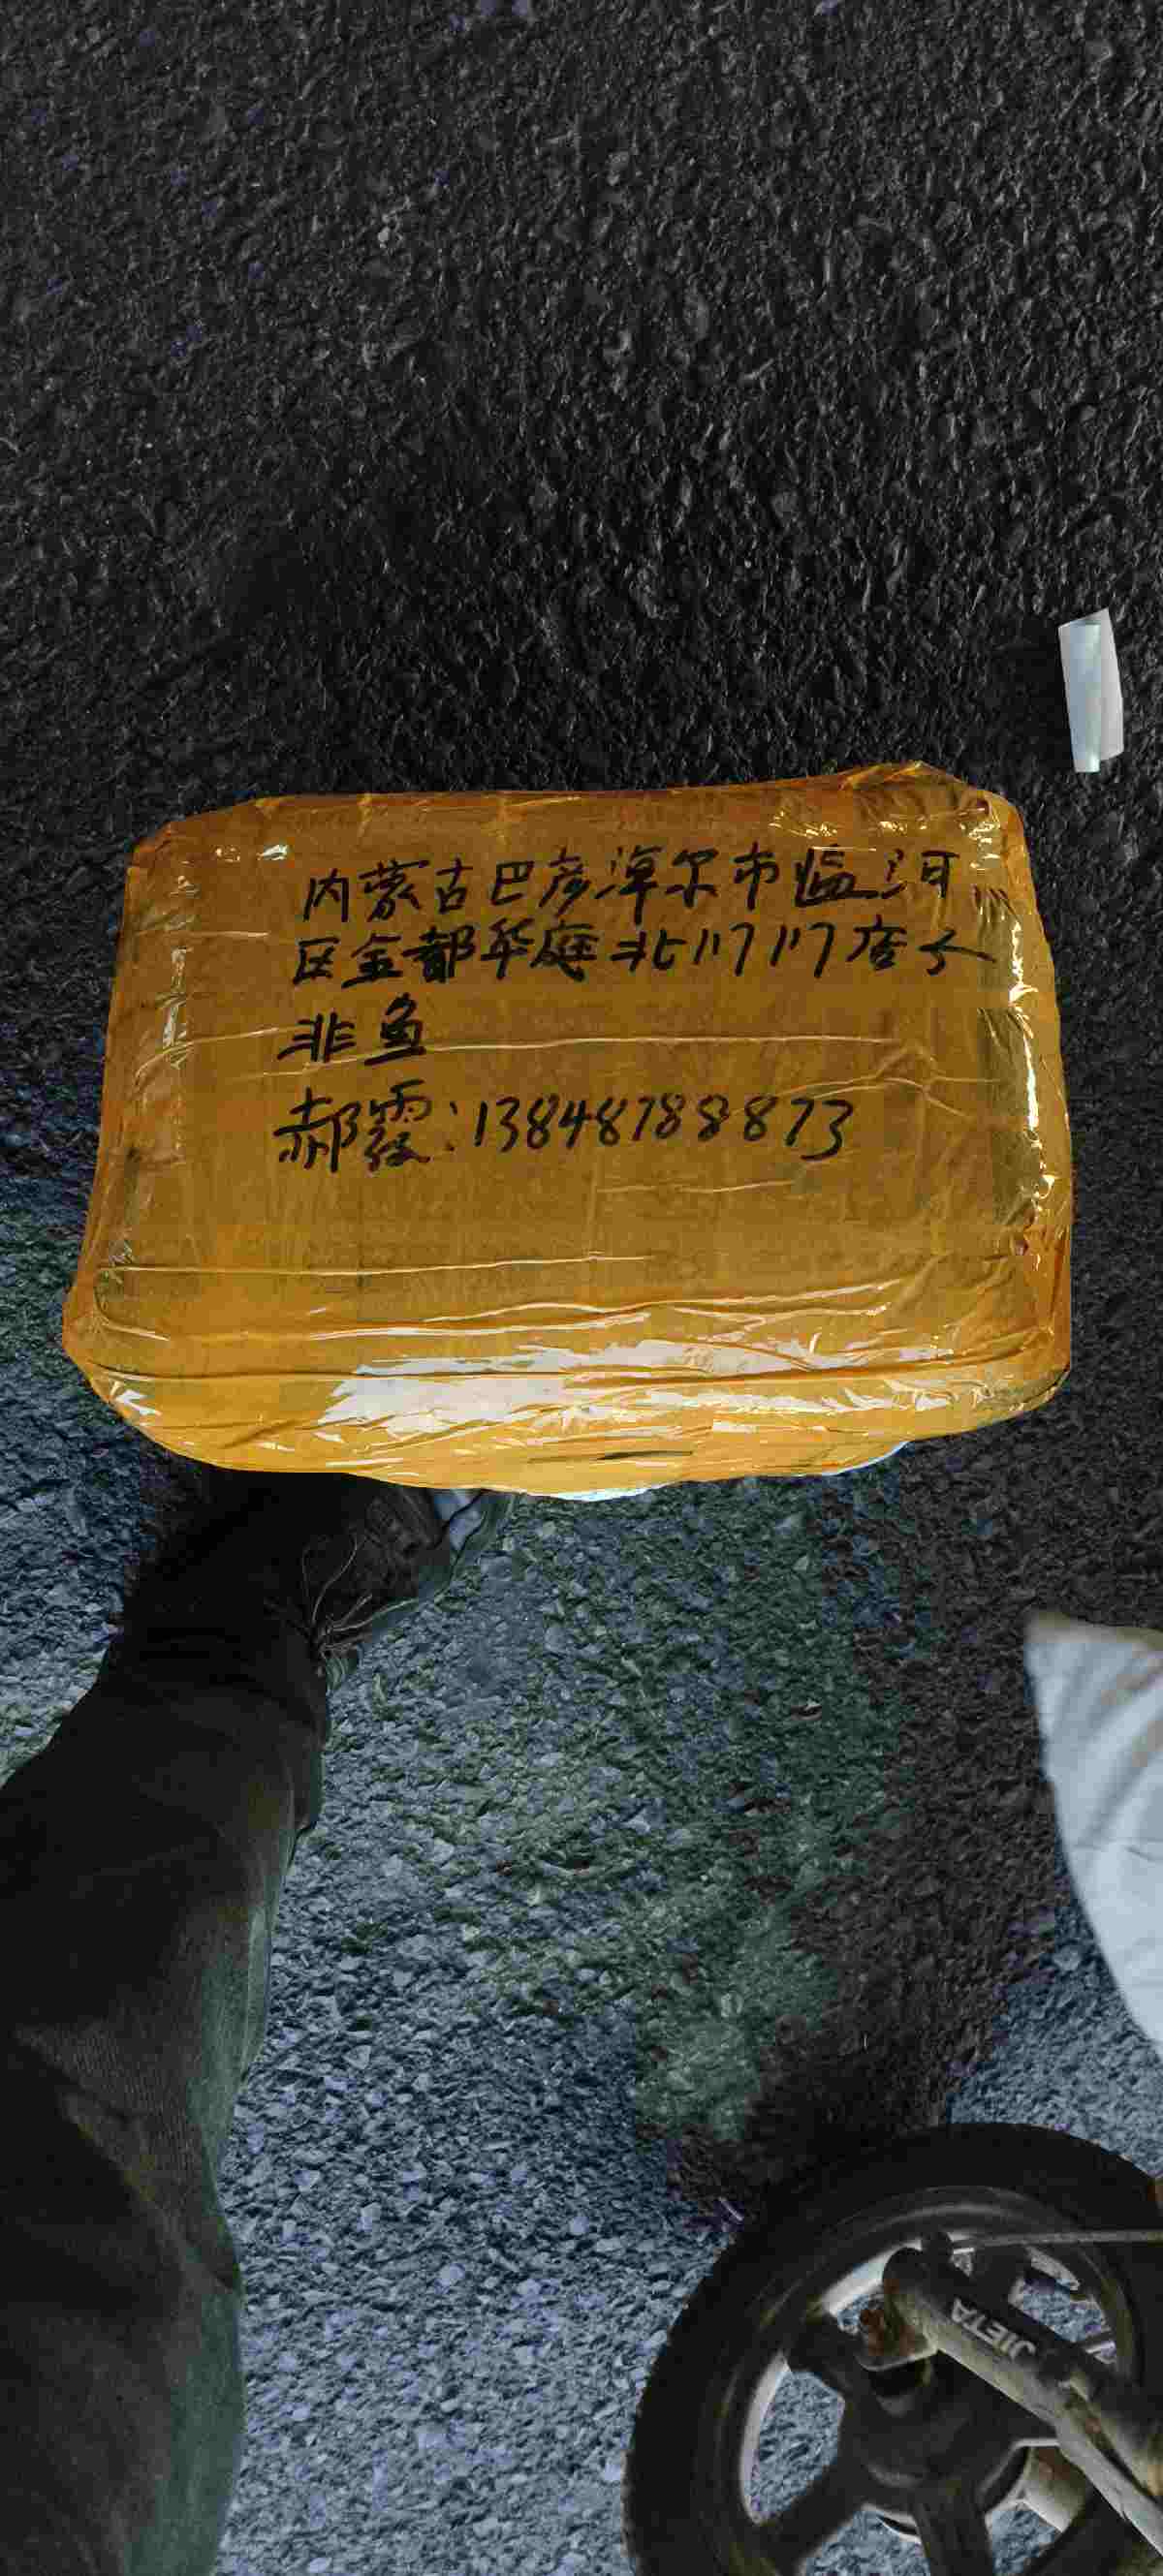 内蒙古巴彦淖尔市临河
区金都华庭北门门店子
非鱼
郝霞:13848788873
JIETA